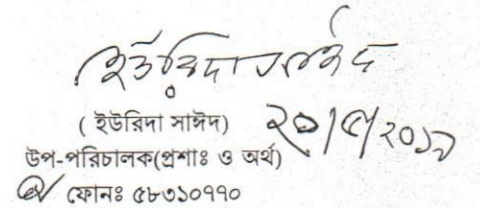 ইউরিদা সাঈদ
( ইউরিদা সাঈদ)
উপ-পরিচালক(প্রশাঃ ও অর্থ)
ফোনঃ ৫৮৩১০৭৭০